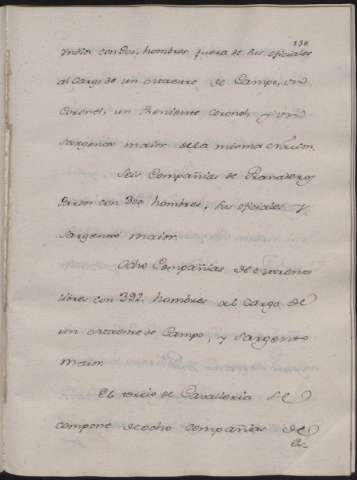 Indios con 800, hombres fuera de sus oficiales
al Cargo de un Maestre de Campo, un
Coronel, un Theniente Coronel, y un
Sargento maior de la misma Nacion.
Seis Compañias de Granaderos
Pardos con 300 hombres, sus oficiales y
Sargento maior.
Ocho Compañias de Morenos
libres con 392. hombres al cargo de
un Maestre de Campo, y Sargento
maior.
El tercio de Cavalleria se
compone de ocho compañias de